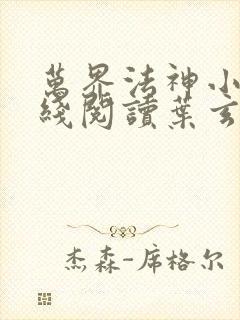 萬界法神小
綫閱讀葉玄
杰森-席格尔